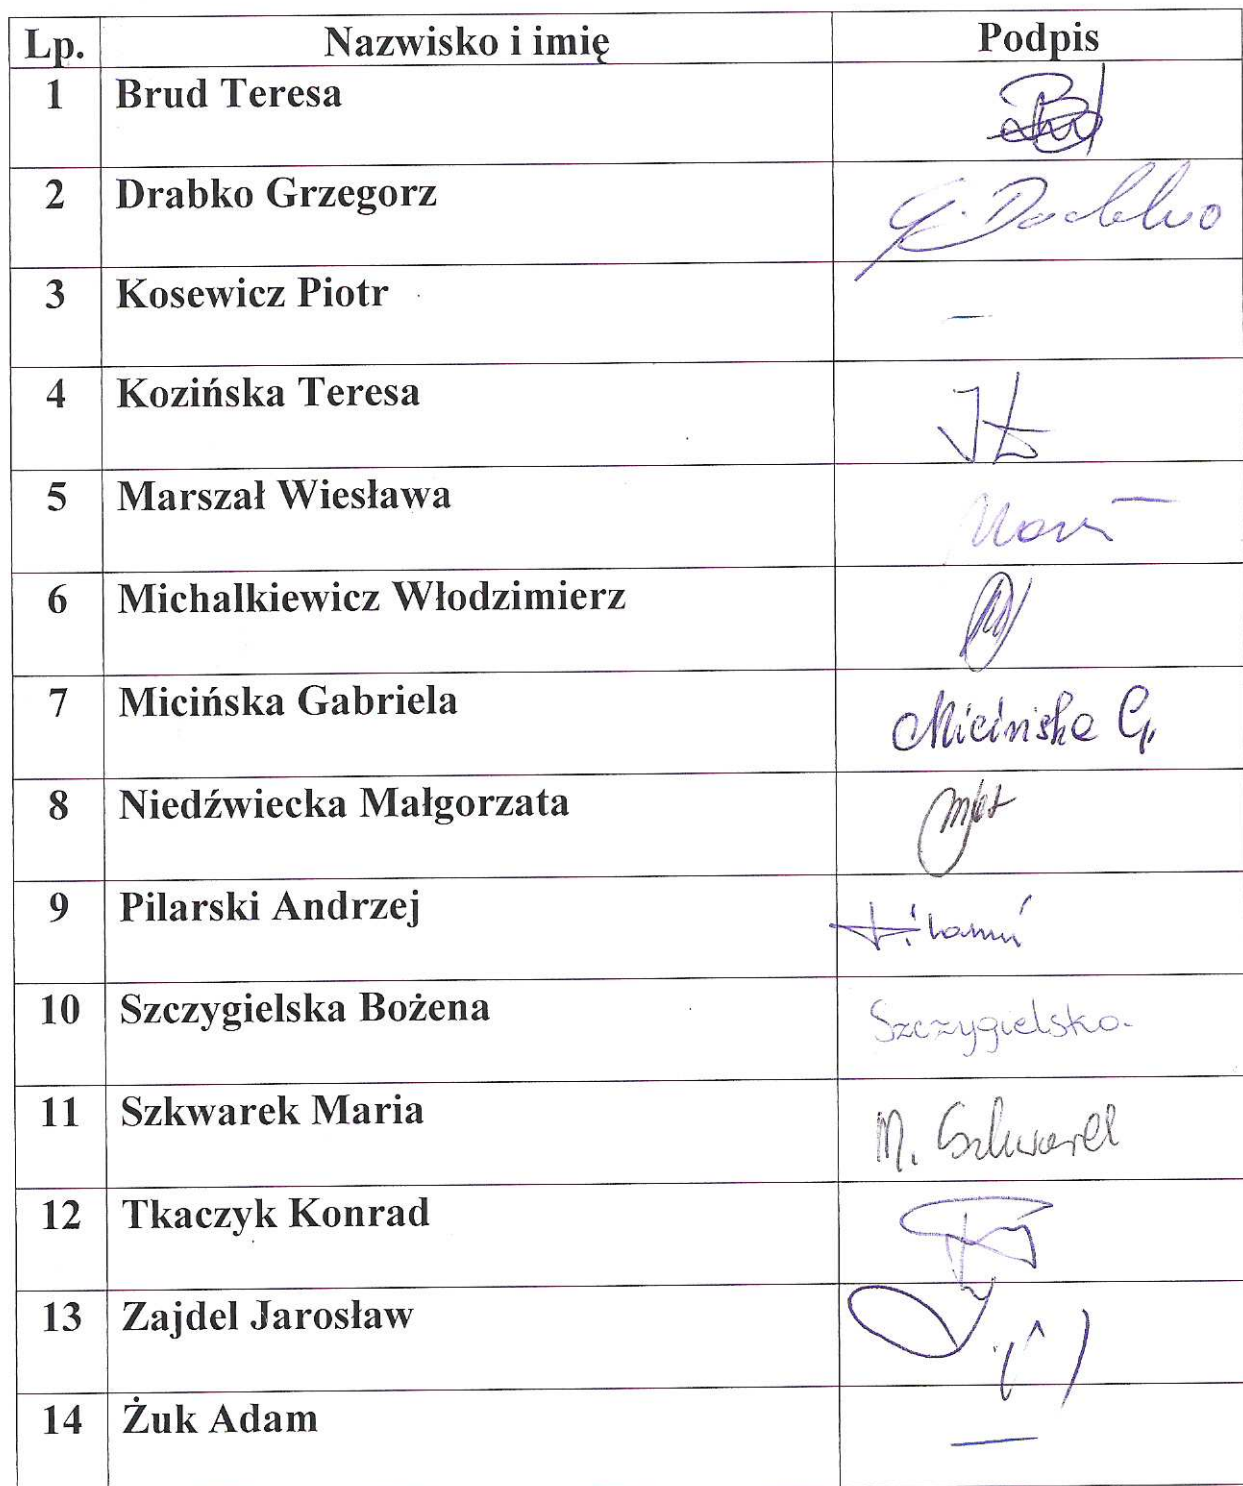 Lp. Nazwisko i imię Podpis
1 Brud Teresa
2 Drabko Grzegorz G. Drabko
3 Kosewicz Piotr –
4 Kozińska Teresa
5 Marszał Wiesława
6 Michalkiewicz Włodzimierz
7 Micińska Gabriela Micińska G.
8 Niedźwiecka Małgorzata
9 Pilarski Andrzej
10 Szczygielska Bożena Szczygielska
11 Szkwarek Maria M. Szkwarek
12 Tkaczyk Konrad
13 Zajdel Jarosław
14 Żuk Adam –